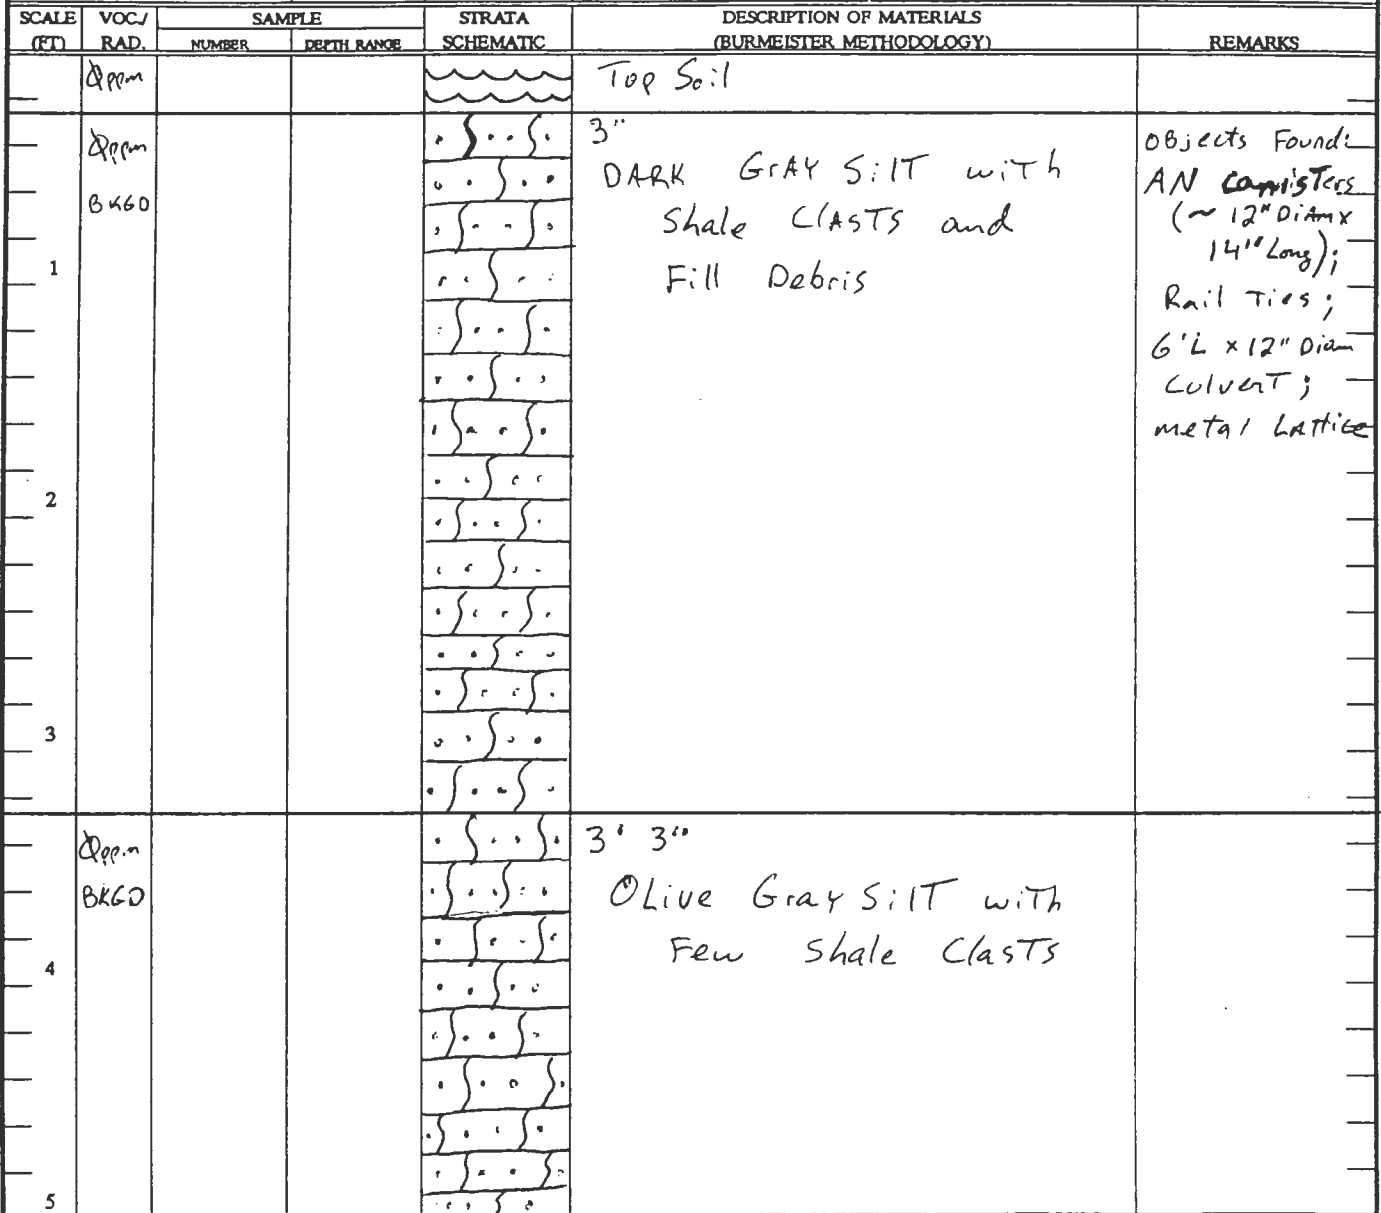 SCALE (FT) VOC./ RAD. SAMPLE NUMBER DEPTH RANGE STRATA SCHEMATIC DESCRIPTION OF MATERIALS (BURMEISTER METHODOLOGY) REMARKS
Øppm Top Soil
Øppm
BKGD
3"
DARK GrAY SilT with
Shale ClASTS and
Fill Debris
OBjects Found:
AN cannisTers
(~ 12" DiAm x
14" Long);
Rail Ties;
6'L x 12" Diam
CulverT;
metal LATTice
1
2
3
Øppm
BKGD
3' 3"
OLive Gray SilT with
Few Shale ClasTs
4
5